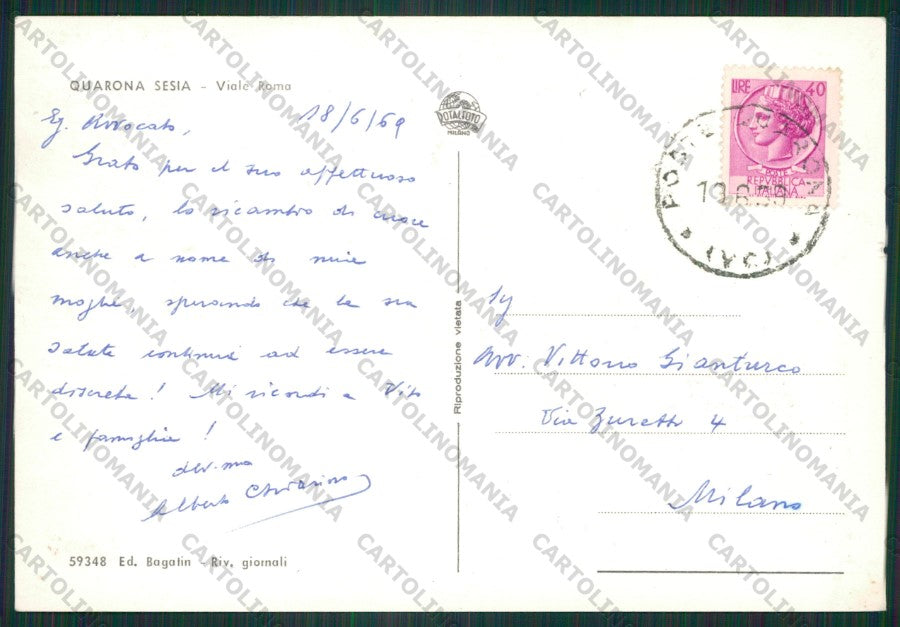 QUARONA SESIA - Viale Roma
Eg. Avvocato, 18/6/69
Grato per il suo affettuoso
saluto, lo ricambio di cuore
anche a nome di mia
moglie, sperando che la sua
salute continui ad essere
discreta! Mi ricordi a Vito
e famiglia!
dev.mo
Alberto
59348 Ed. Bagatin - Riv. giornali
ROTALFOTO
MILANO
Riproduzione vietata
LIRE 40
POSTE
REPVBBLICA
ITALIANA
POSTE QUARONA
(VC)
Avv. Vittorio Gianturco
Via Zuretti 4
Milano
CARTOLINOMANIA